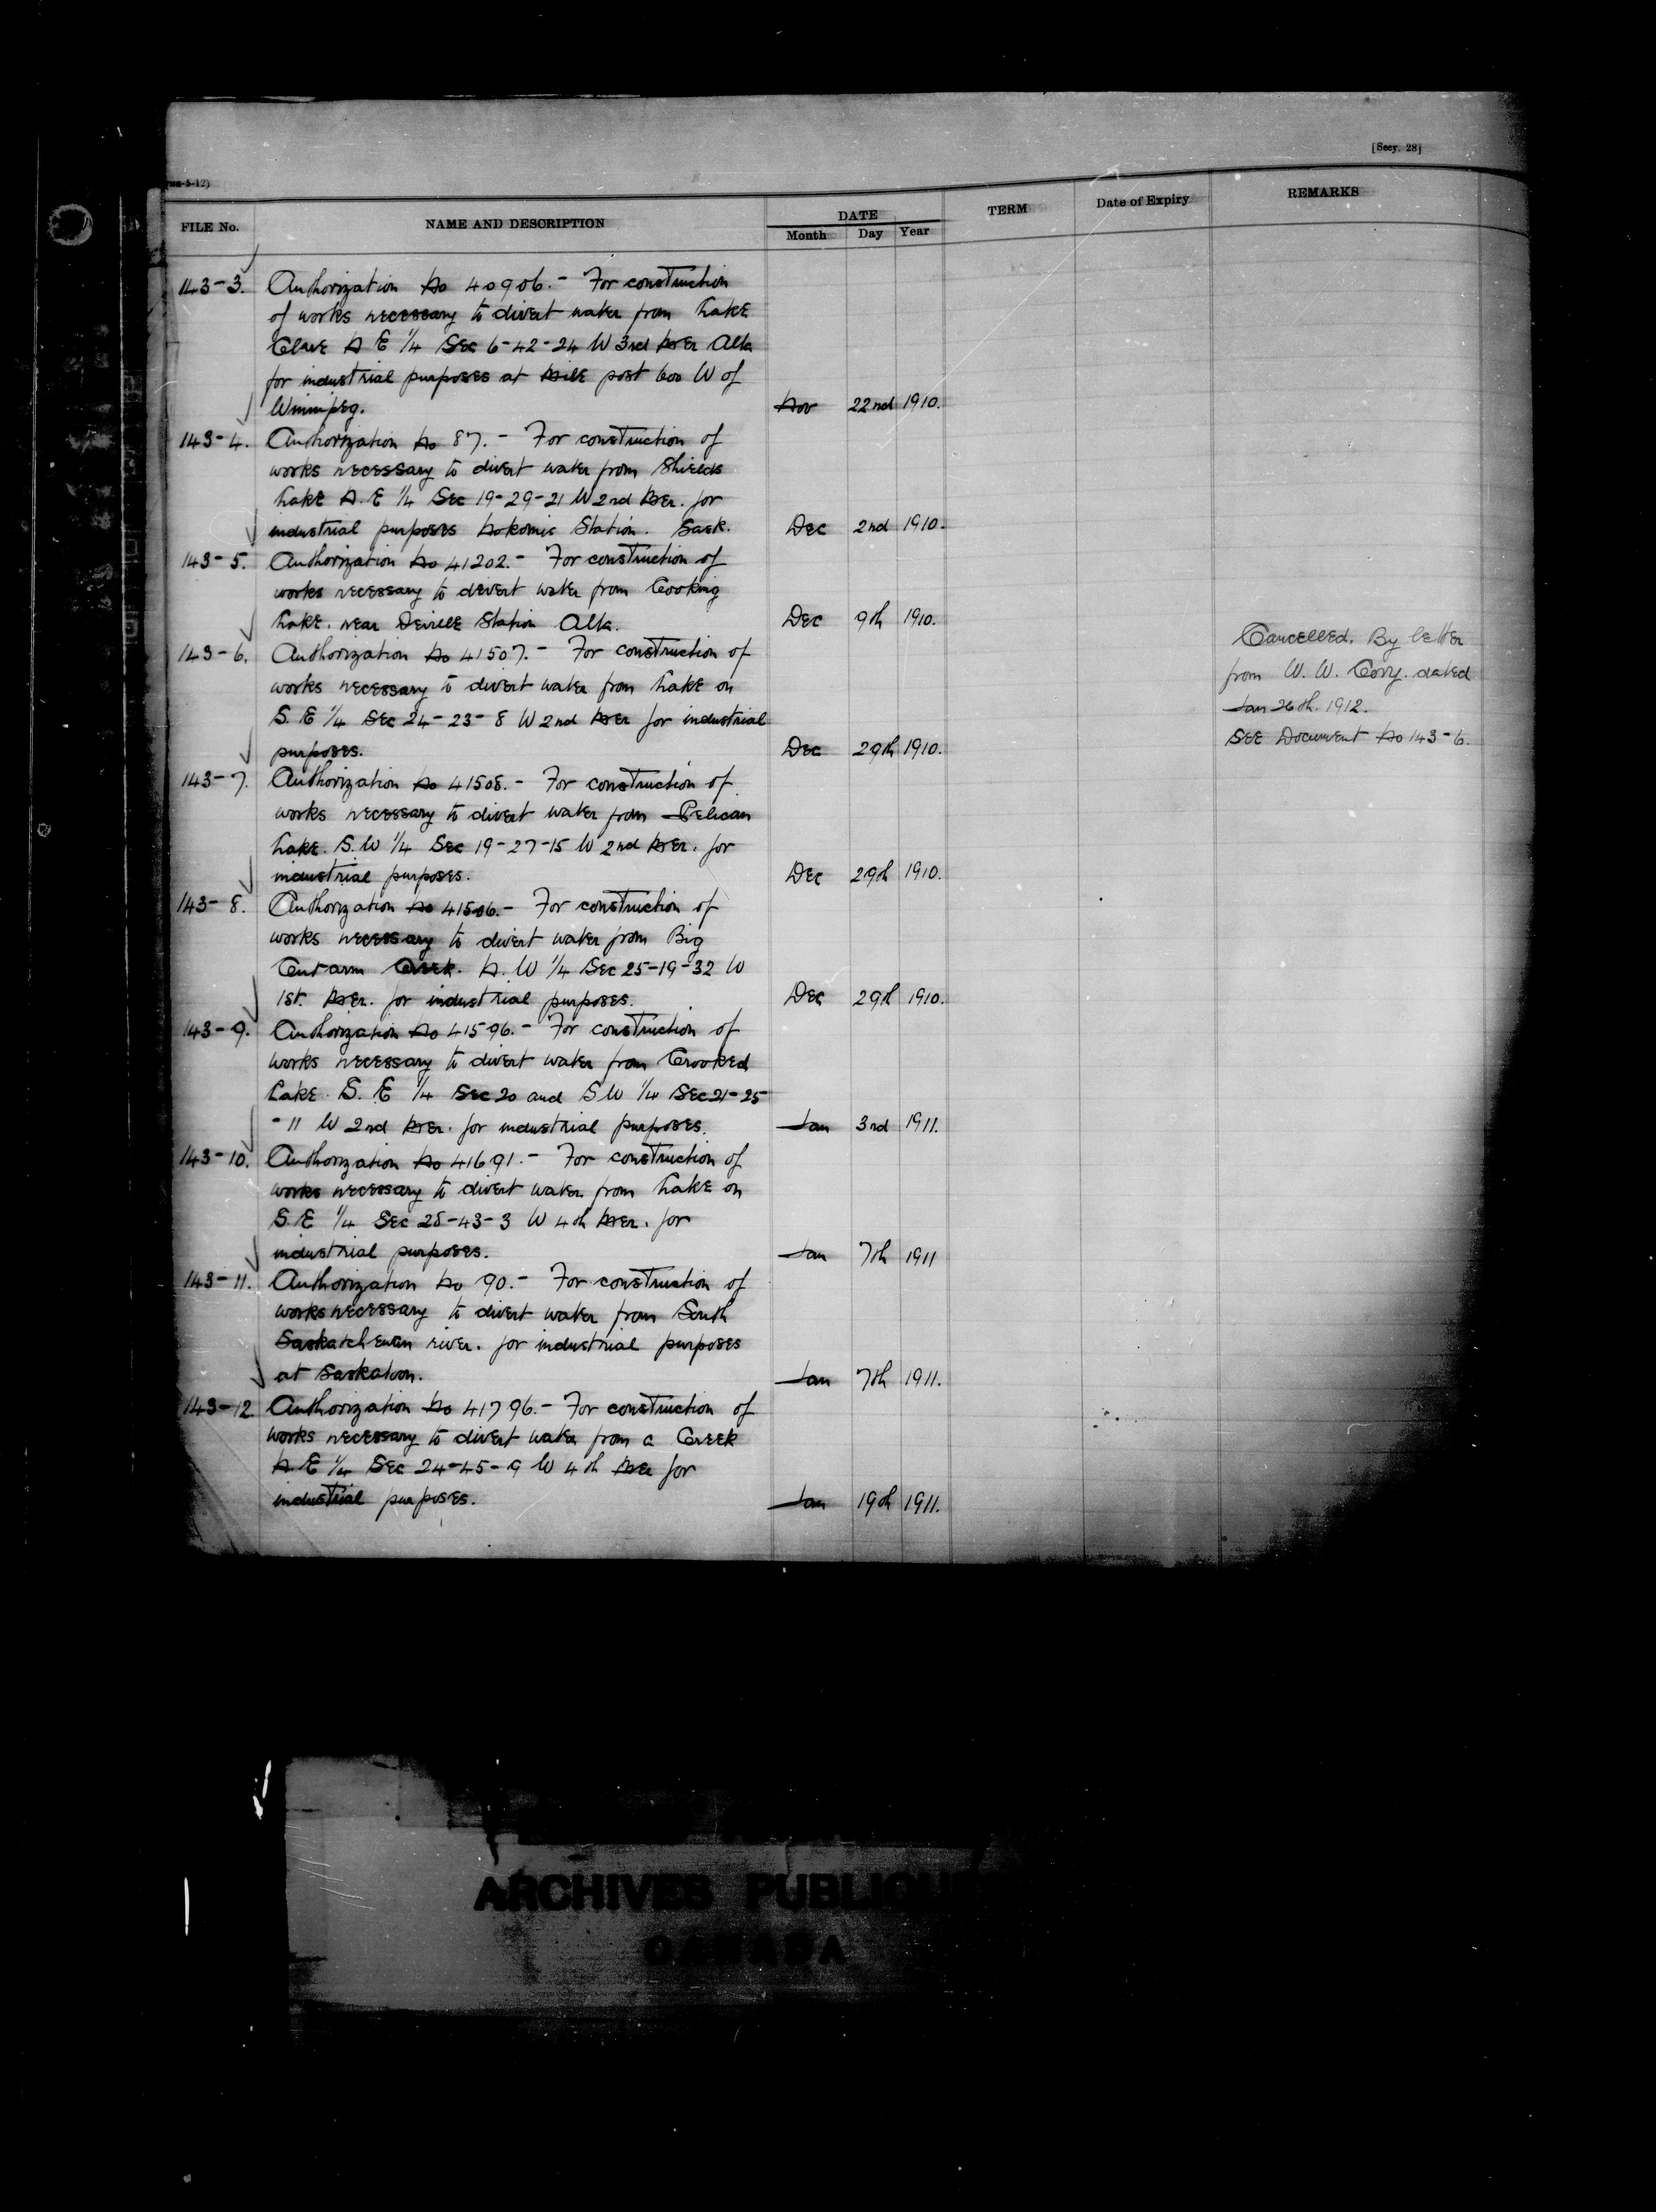 [Secy. 28]
FILE No. NAME AND DESCRIPTION DATE Month Day Year TERM Date of Expiry REMARKS
143-3. Authorization No 40906.- For construction
of works necessary to divert water from Lake
N E 1/4 Sec 6-42-24 W 3rd Mer Alta
for industrial purposes at Mile post 600 W of
Winnipeg. Nov 22nd 1910.
143-4. Authorization No 87.- For construction of
works necessary to divert water from Shields
Lake N. E 1/4 Sec 19-29-21 W 2nd Mer. for
industrial purposes Nokomis Station. Sask. Dec 2nd 1910.
143-5. Authorization No 41202.- For construction of
works necessary to divert water from Cooking
Lake. near Station Alta. Dec 9th 1910.
143-6. Authorization No 41507.- For construction of
works necessary to divert water from Lake on
S. E 1/4 Sec 24-23-8 W 2nd Mer for industrial
purposes. Dec 29th 1910.
Cancelled. By letter
from W. W. Cory. dated
Jan 26th. 1912.
See Document No 143-6.
143-7. Authorization No 41508.- For construction of
works necessary to divert water from Pelican
Lake. S. W 1/4 Sec 19-27-15 W 2nd Mer. for
industrial purposes. Dec 29th 1910.
143-8. Authorization No 41506.- For construction of
works necessary to divert water from Big
Cutarm Creek. N. W 1/4 Sec 25-19-32 W
1st. Mer. for industrial purposes. Dec 29th 1910.
143-9. Authorization No 41596.- For construction of
works necessary to divert water from Crooked
Lake. S. E 1/4 Sec 20 and S W 1/4 Sec 21-25
-11 W 2nd Mer. for industrial purposes. Jan 3rd 1911.
143-10. Authorization No 41691.- For construction of
works necessary to divert water from Lake on
S. E 1/4 Sec 28-43-3 W 4th Mer. for
industrial purposes. Jan 7th 1911
143-11. Authorization No 90.- For construction of
works necessary to divert water from South
Saskatchewan river. for industrial purposes
at Saskatoon. Jan 7th 1911.
143-12. Authorization No 41796.- For construction of
works necessary to divert water from a Creek
N. E 1/4 Sec 24-45-9 W 4th Mer for
industrial purposes. Jan 19th 1911.
ARCHIVES PUBLIQUES
CANADA